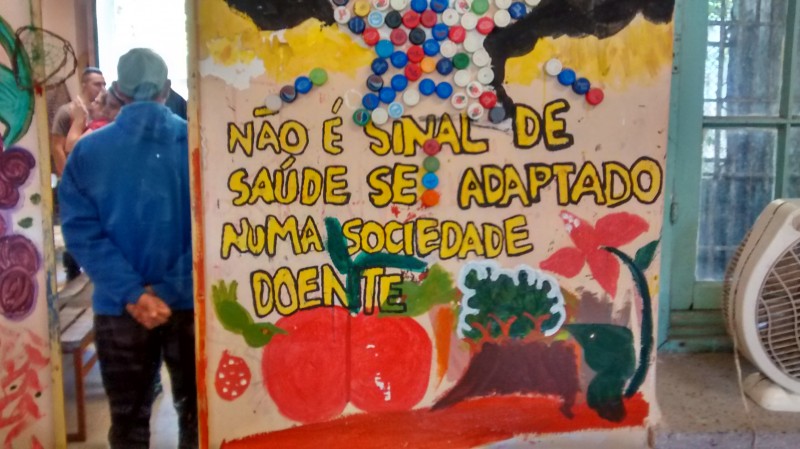 NÃO É SINAL DE
SAÚDE SE ADAPTADO
NUMA SOCIEDADE
DOENTE